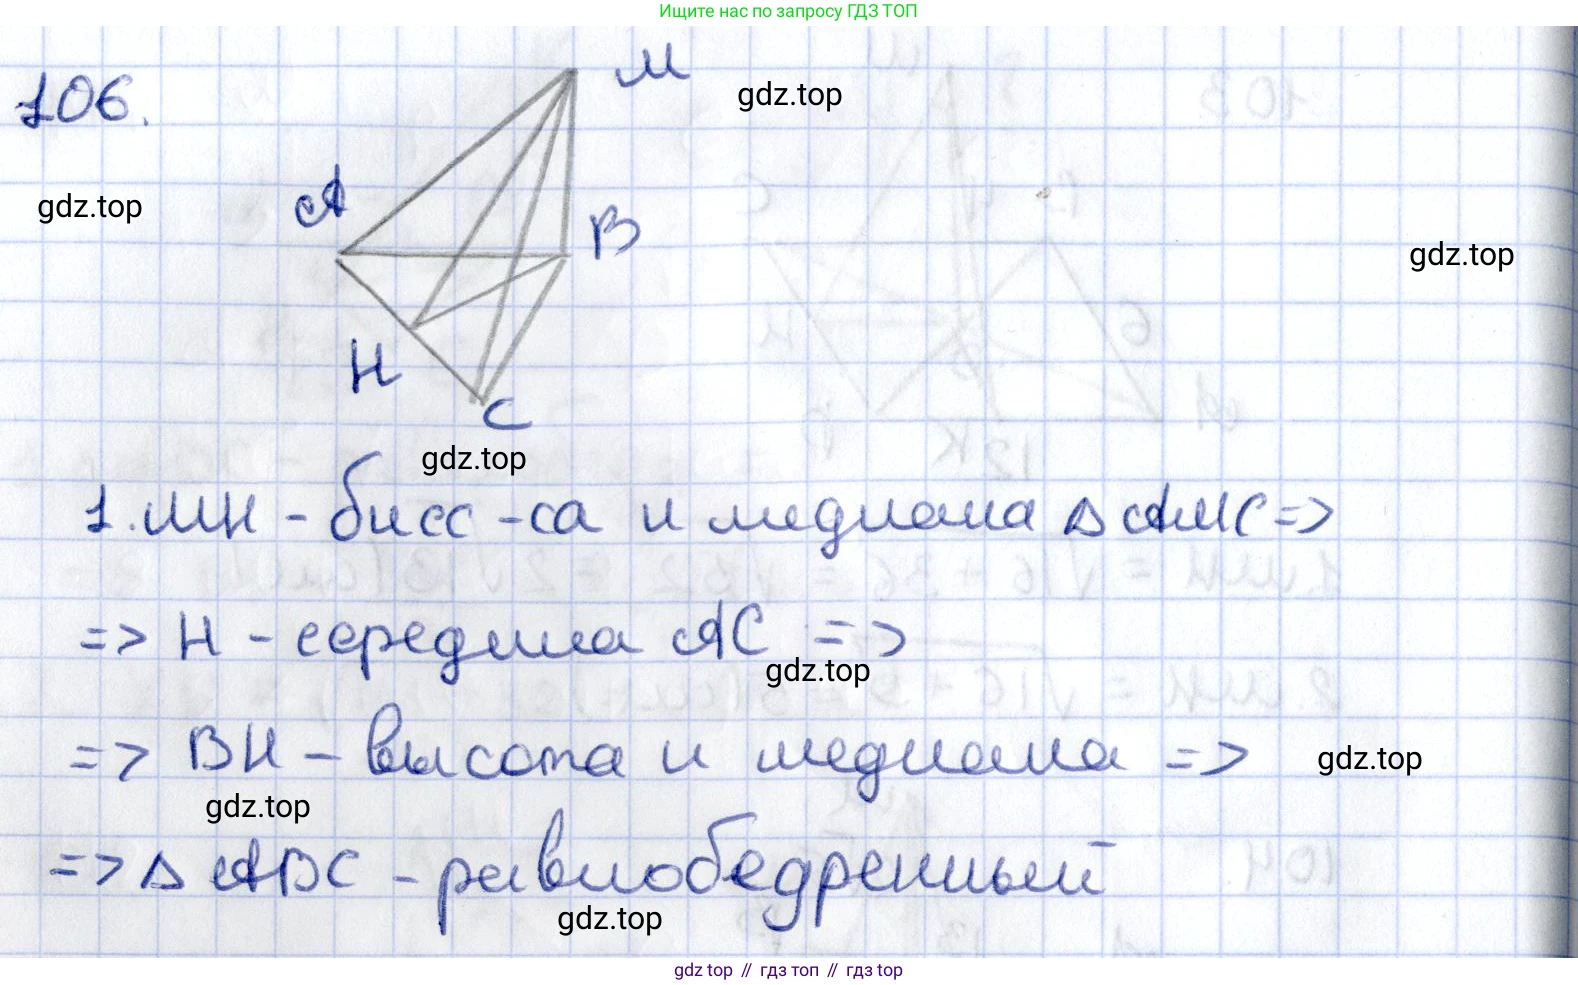 Ищите нас по запросу ГДЗ ТОП
106.
M
gdz.top
A
gdz.top
B
gdz.top
H
C
gdz.top
1. МН - бисс-са и медиана Δ АМС =>
=> Н - середина АС =>
gdz.top
=> ВН - высота и медиана =>
gdz.top
gdz.top
=> Δ АВС - равнобедренный
gdz.top
gdz top // гдз топ // гдз top